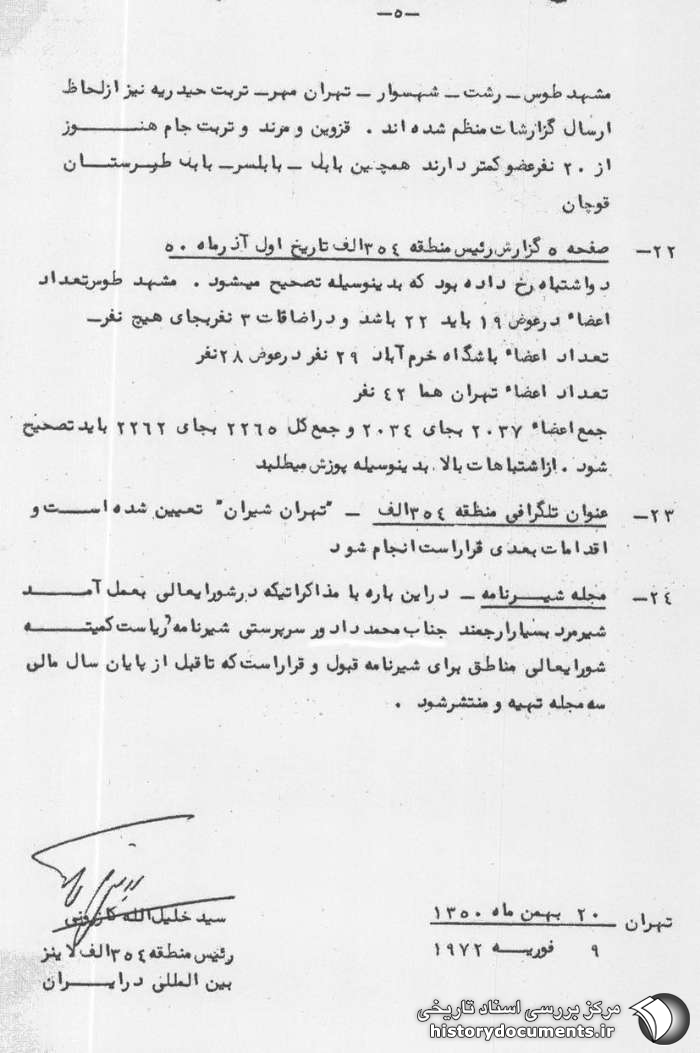 -۵-
مشهد طوس - رشت - شهسوار - تهران مهر - تربت حیدریه نیز ازلحاظ
ارسال گزارشات منظم شده اند . قزوین و مرند و تربت جام هنوز
از ۲۰ نفرعضو کمتر دارند همچنین بابل - بابلسر- بابل طبرستان
قوچان
۲۲- صفحه ۵ گزارش رئیس منطقه ۳۵۴الف تاریخ اول آذرماه ۵۰
دواشتباه رخ داده بود که بدینوسیله تصحیح میشود . مشهد طوس تعداد
اعضاء درعوض ۱۹ باید ۲۲ باشد و دراضافات ۳ نفربجای هیچ نفر-
تعداد اعضاء باشگاه خرم آباد ۲۹ نفر درعوض ۲۸نفر
تعداد اعضاء تهران هما ۴۲ نفر
جمع اعضاء ۲۰۳۷ بجای ۲۰۳۴ و جمع کل ۲۲۶۵ بجای ۲۲۶۲ باید تصحیح
شود . ازاشتباهات بالا بدینوسیله پوزش میطلبد
۲۳- عنوان تلگرافی منطقه ۳۵۴الف - "تهران شیران" تعیین شده است و
اقدامات بعدی قراراست انجام شود
۲۴- مجله شیرنامه - دراین باره با مذاکراتیکه درشورایعالی بعمل آمد
شیرمرد بسیارارجمند جناب محمد داور سرپرستی شیرنامه و ریاست کمیته
شورایعالی مناطق برای شیرنامه قبول و قراراست که تاقبل از پایان سال مالی
سه مجله تهیه و منتشرشود .
تهران ۲۰ بهمن ماه ۱۳۵۰
۹ فوریه ۱۹۷۲
سید خلیل الله کازرونی
رئیس منطقه ۳۵۴الف لاینز
بین المللی درایران
مرکز بررسی اسناد تاریخی
historydocuments.ir